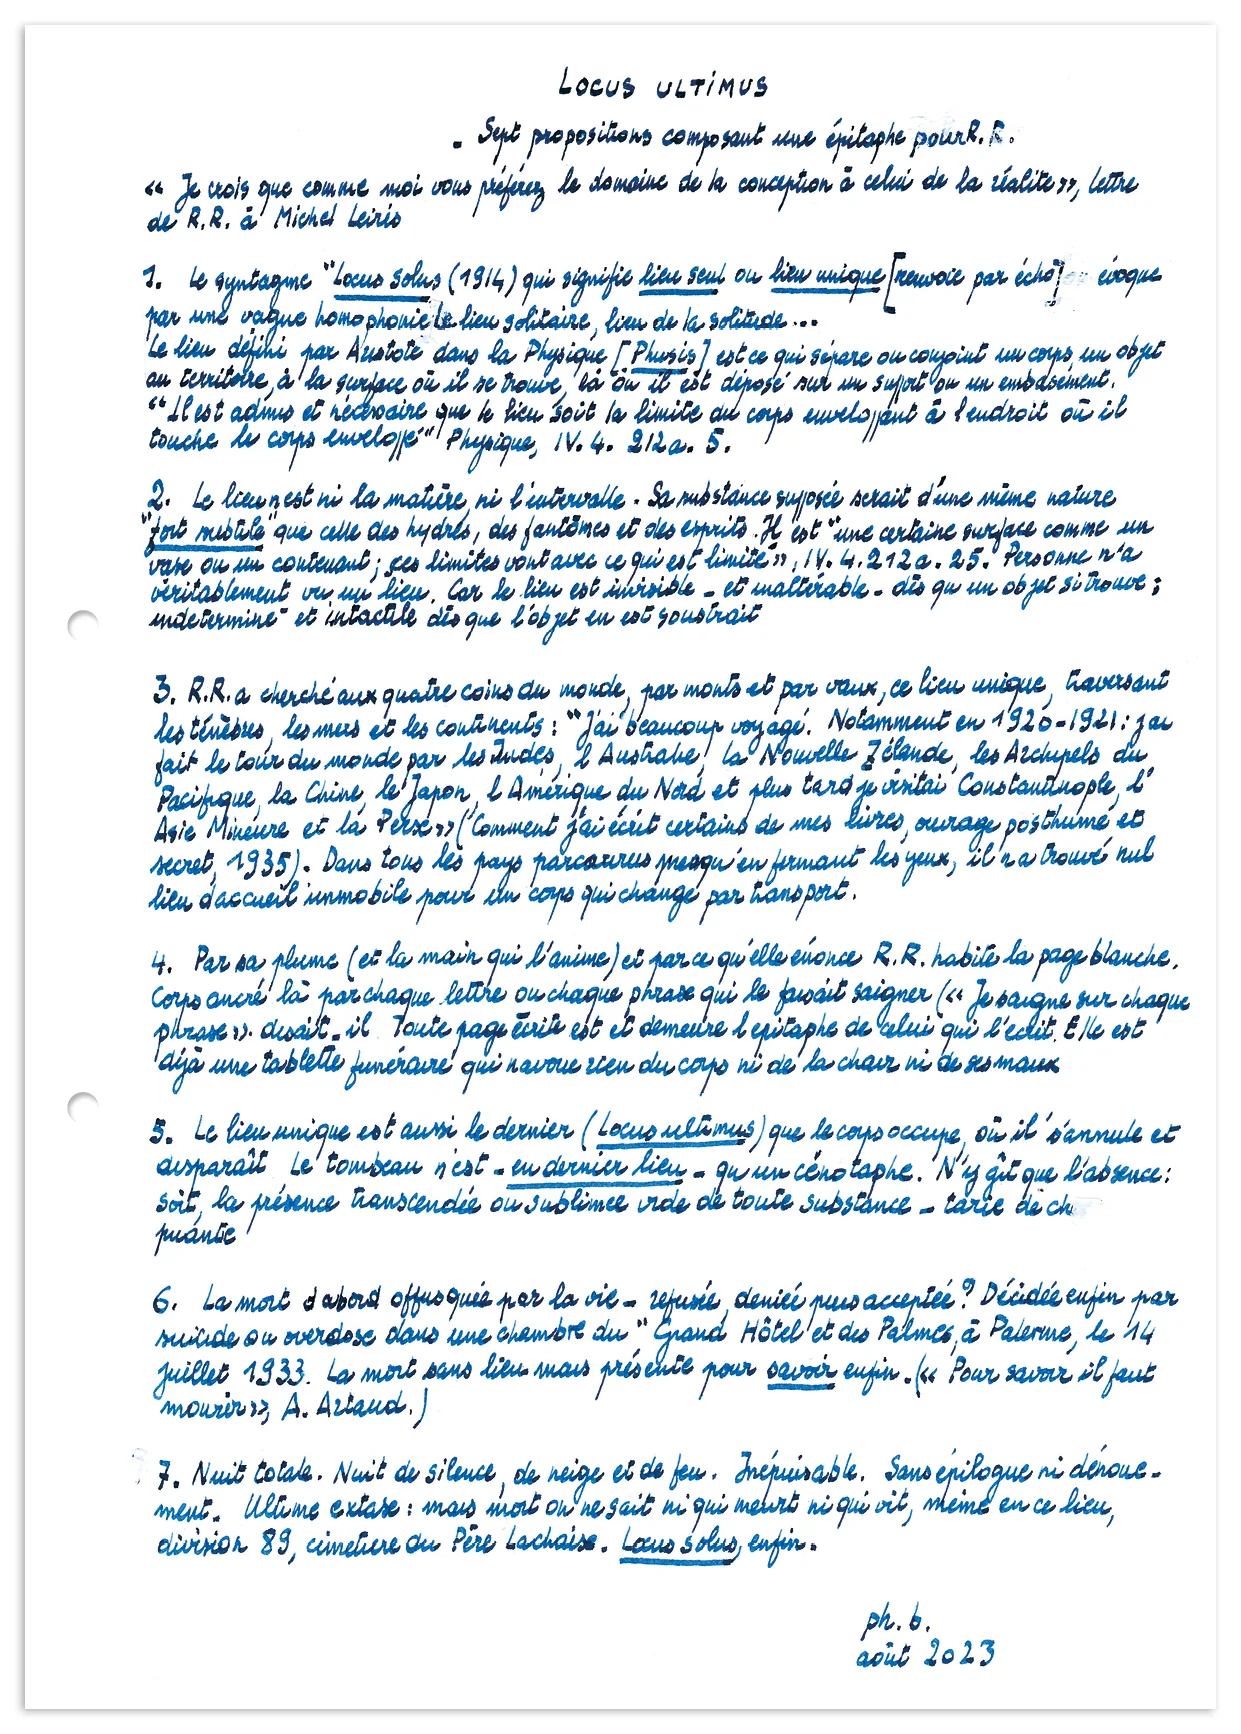 LOCUS ULTIMUS
- Sept propositions composant une épitaphe pour R.R.
« Je crois que comme moi vous préférez le domaine de la conception à celui de la réalité », lettre
de R.R. à Michel Leiris
1. Le syntagme "Locus Solus (1914) qui signifie lieu seul ou lieu unique [renvoie par écho] évoque
par une vague homophonie le lieu solitaire, lieu de la solitude...
Le lieu défini par Aristote dans la Physique [Phusis] est ce qui sépare ou conjoint un corps un objet
au territoire, à la surface où il se trouve, là où il est déposé sur un suport ou un embasément.
"Il est admis et nécessaire que le lieu soit la limite du corps enveloppant à l'endroit où il
touche le corps enveloppé" Physique, IV. 4. 212a. 5.
2. Le lieu n'est ni la matière, ni l'intervalle. Sa substance supposée serait d'une même nature
"fort subtile" que celle des hydres, des fantômes et des esprits. Il est "une certaine surface comme un
vase ou un contenant ; ses limites vont avec ce qui est limité », IV. 4. 212a. 25. Personne n'a
véritablement vu un lieu. Car le lieu est invisible - et inaltérable - dès qu'un objet s'i trouve ;
indeterminé et intactile dès que l'objet en est soustrait
3. R.R. a cherché aux quatre coins du monde, par monts et par vaux, ce lieu unique, traversant
les ténèbres, les mers et les continents : "J'ai beaucoup voyagé. Notamment en 1920-1921 : j'ai
fait le tour du monde par les Indes, l'Australie, la Nouvelle Zélande, les Archipels du
Pacifique, la Chine, le Japon, l'Amérique du Nord et plus tard je visitai Constantinople, l'
Asie Mineure et la Perse » (Comment j'ai écrit certains de mes livres, ouvrage posthume et
secret, 1935). Dans tous les pays parcourus presqu'en fermant les yeux, il n'a trouvé nul
lieu d'accueil immobile pour un corps qui change par transport.
4. Par sa plume (et la main qui l'anime) et parce qu'elle énonce R.R. habite la page blanche.
Corps ancré là par chaque lettre ou chaque phrase qui le faisait saigner (« Je saigne sur chaque
phrase ». disait-il Toute page écrite est et demeure l'épitaphe de celui qui l'écrit. Elle est
déjà une tablette funéraire qui n'avoue rien du corps ni de la chair ni de ses maux
5. Le lieu unique est aussi le dernier (Locus ultimus) que le corps occupe, où il s'annule et
disparaît Le tombeau n'est - en dernier lieu - qu'un cénotaphe. N'y gît que l'absence :
soit, la présence transcendée ou sublimée vide de toute substance - tarie de ch
puante
6. La mort d'abord offusquée par la vie - refusée, deniée puis acceptée ? Décidée enfin par
suicide ou overdose dans une chambre du "Grand Hôtel et des Palmes, à Palerme, le 14
juillet 1933. La mort sans lieu mais présente pour savoir enfin. (« Pour savoir il faut
mourir », A. Artaud.)
7. Nuit totale. Nuit de silence, de neige et de feu. Inépuisable. Sans épilogue ni dénoue-
ment. Ultime extase : mais mort on ne sait ni qui meurt ni qui vit, même en ce lieu,
division 89, cimetière du Père Lachaise. Locus Solus, enfin.
ph. b.
août 2023